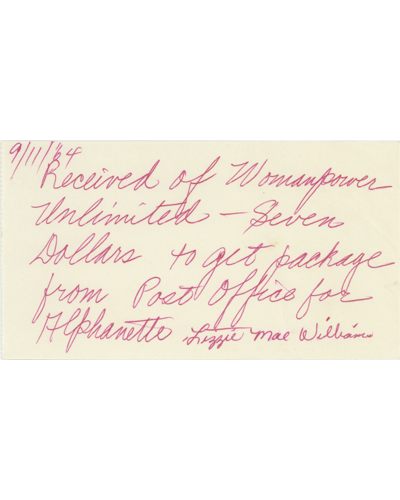 9/11/64
Received of Womanpower
Unlimited — Seven
Dollars to get package
from Post Office for
Alphanette Lizzie Mae Williams